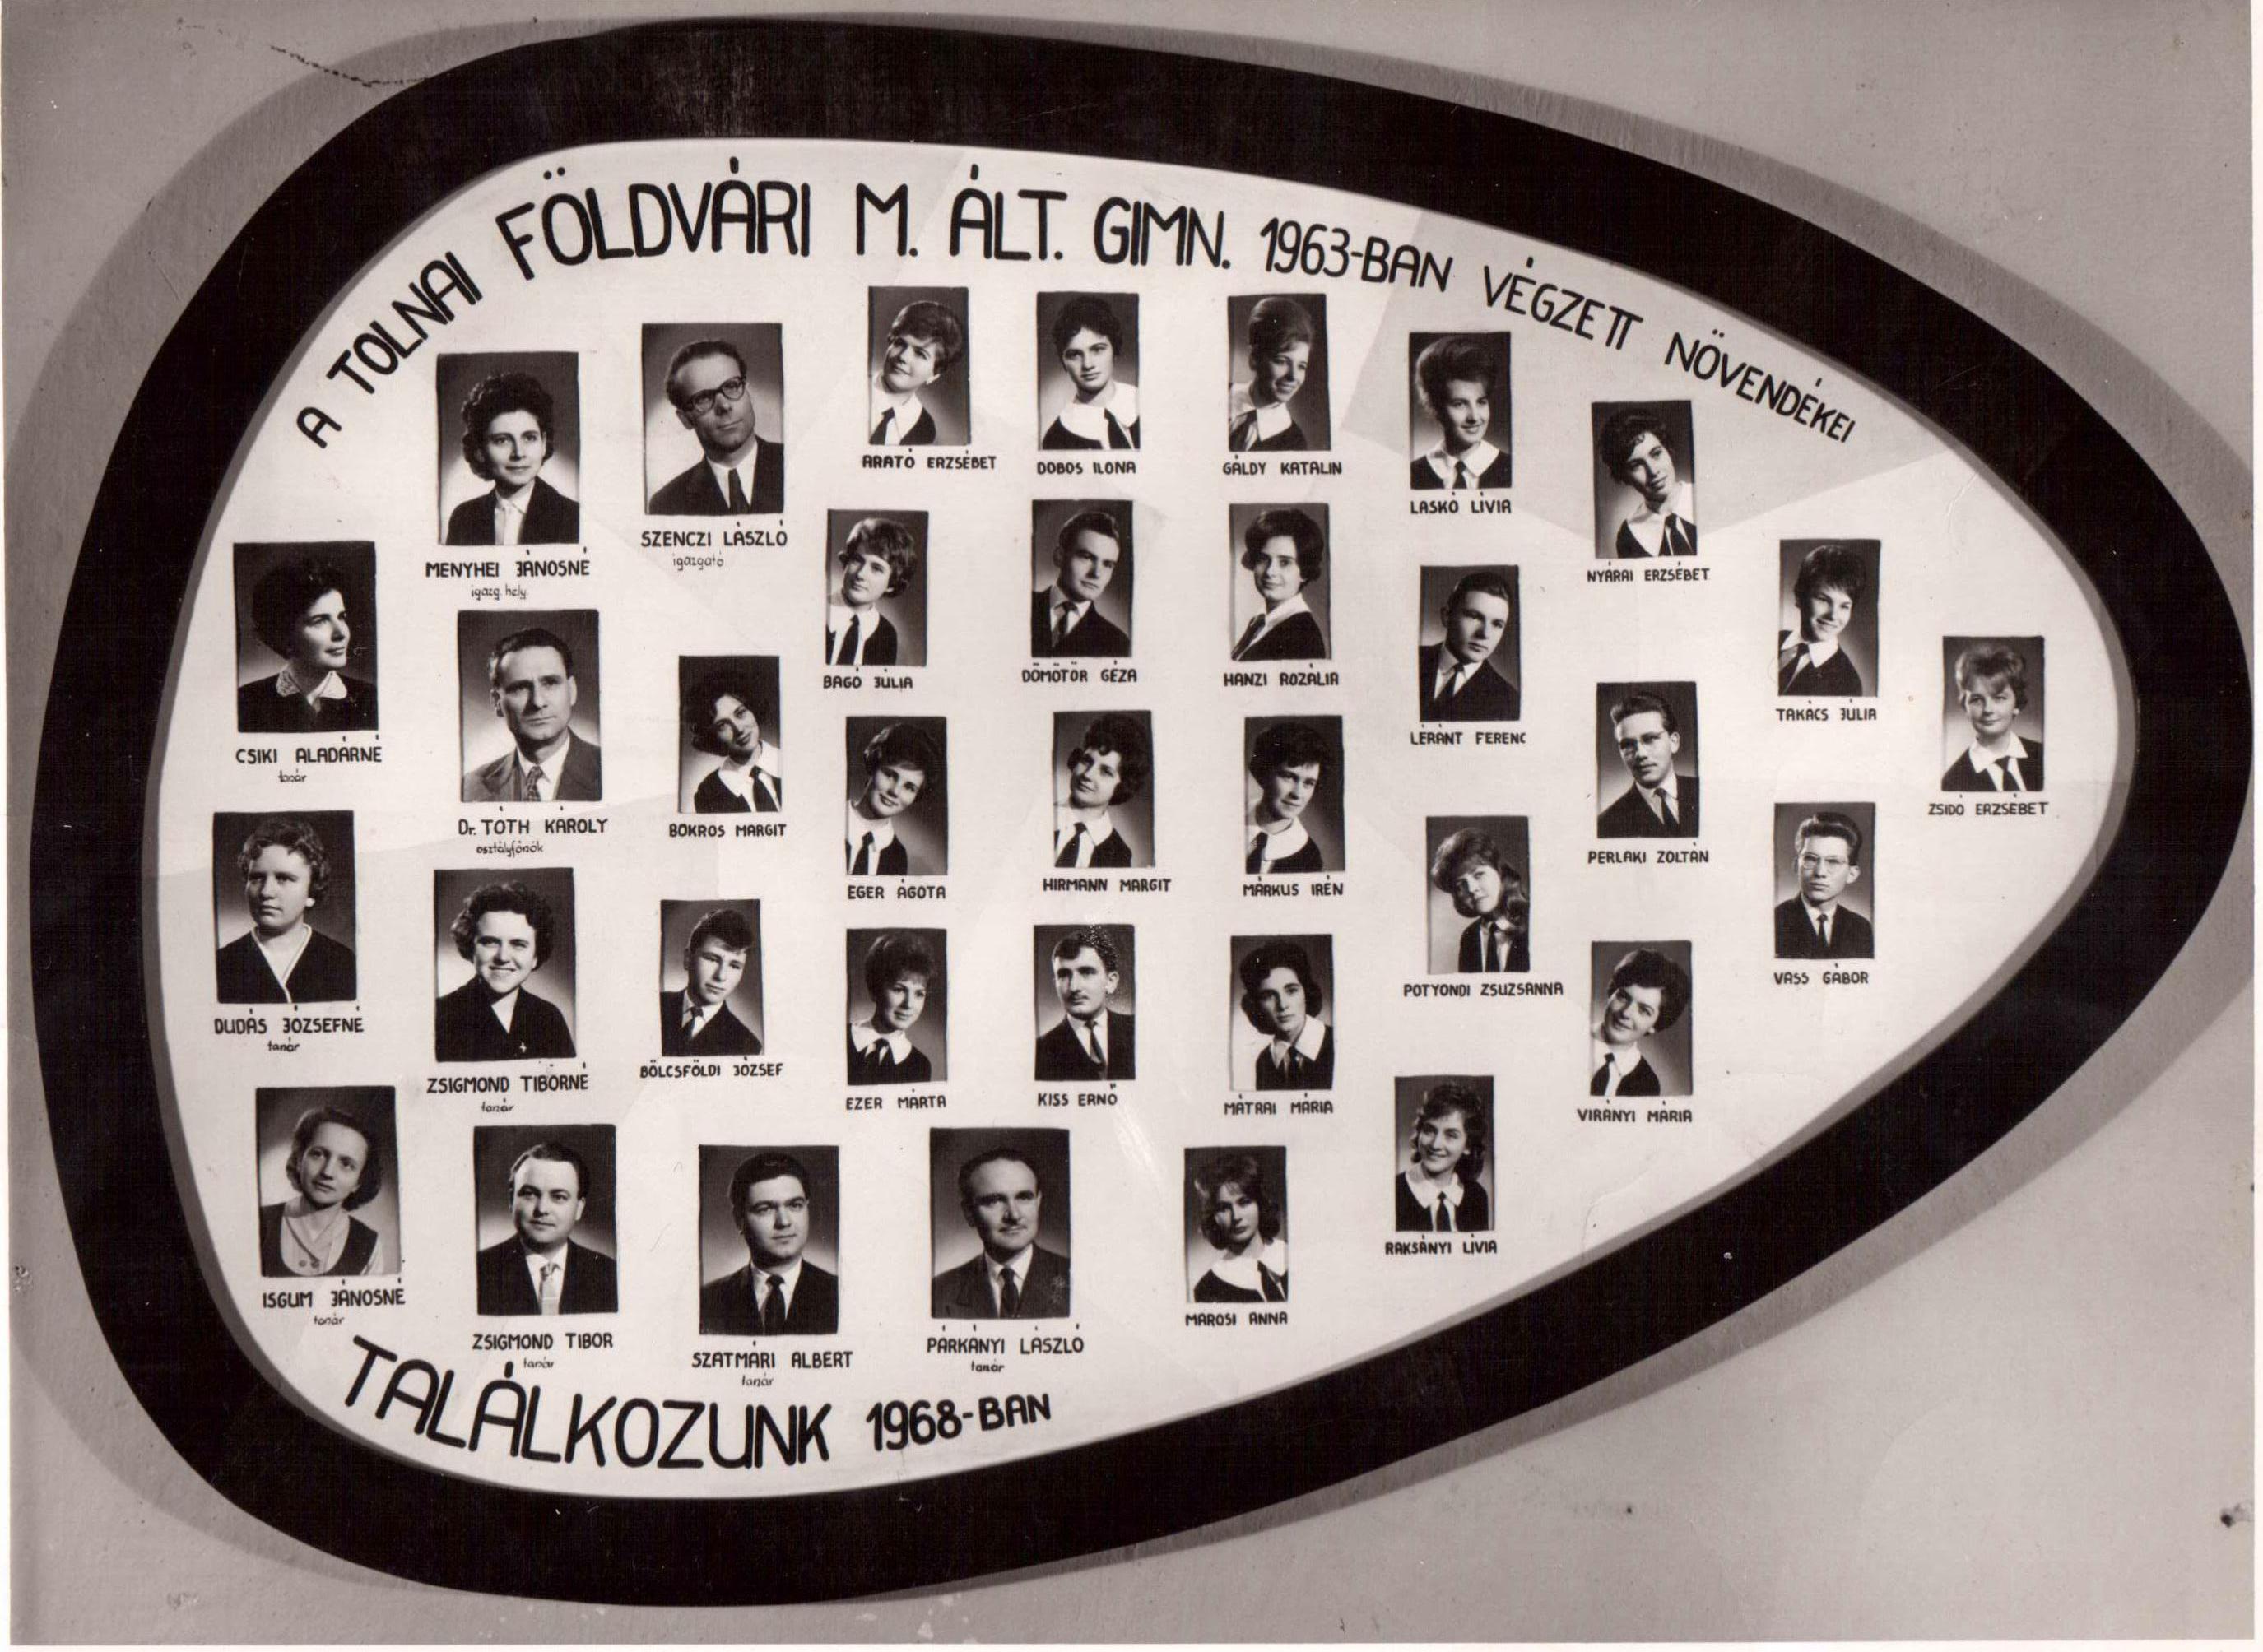 A TOLNAI FÖLDVÁRI M. ÁLT. GIMN. 1963-BAN VÉGZETT NÖVENDÉKEI
ARATÓ ERZSÉBET
DOBOS ILONA
GÁLDY KATALIN
LASKÓ LÍVIA
NYÁRAI ERZSÉBET
SZENCZI LÁSZLÓ
igazgató
MENYHEI JÁNOSNÉ
igazg. hely.
BAGÓ JÚLIA
DÖMÖTÖR GÉZA
HANZI ROZÁLIA
LÉRÁNT FERENC
TAKÁCS JÚLIA
CSIKI ALADÁRNÉ
tanár
Dr. TÓTH KÁROLY
osztályfőnök
BOKROS MARGIT
EGER ÁGOTA
HIRMANN MARGIT
MÁRKUS IRÉN
PERLAKI ZOLTÁN
ZSIDÓ ERZSÉBET
DUDÁS JÓZSEFNÉ
tanár
ZSIGMOND TIBORNÉ
tanár
BÖLCSFÖLDI JÓZSEF
EZER MÁRTA
KISS ERNŐ
MÁTRAI MÁRIA
POTYONDI ZSUZSANNA
VASS GÁBOR
VIRÁNYI MÁRIA
ISGUM JÁNOSNÉ
tanár
ZSIGMOND TIBOR
tanár
SZATMÁRI ALBERT
tanár
PÁRKÁNYI LÁSZLÓ
tanár
MAROSI ANNA
RAKSÁNYI LÍVIA
TALÁLKOZUNK 1968-BAN